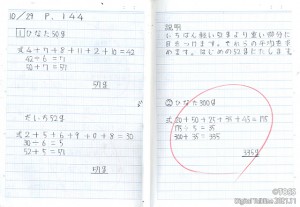 10/29 P.144
1 ひなた50g
式4+7+8+11+2+10=42
42÷6=7
50+7=57
57g
だいち52g
式2+5+6+9+0+8=30
30÷6=5
52+5=57
57g
説明
いちばん軽い52gより重い部分に
目をつけます。それらの平均を求
めます。はじめの52gにたします。
② ひなた300g
式20+50+25+35+45=175
175÷5=35
300+35=335
335g
©TOSS
Digital Edition 2021.11